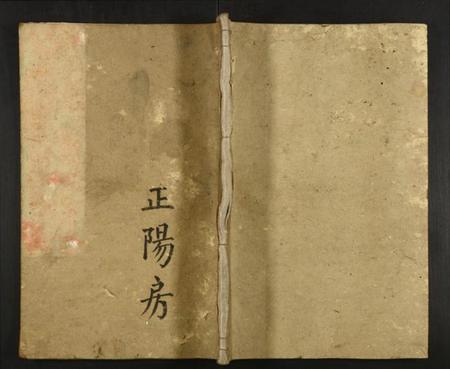 正陽房